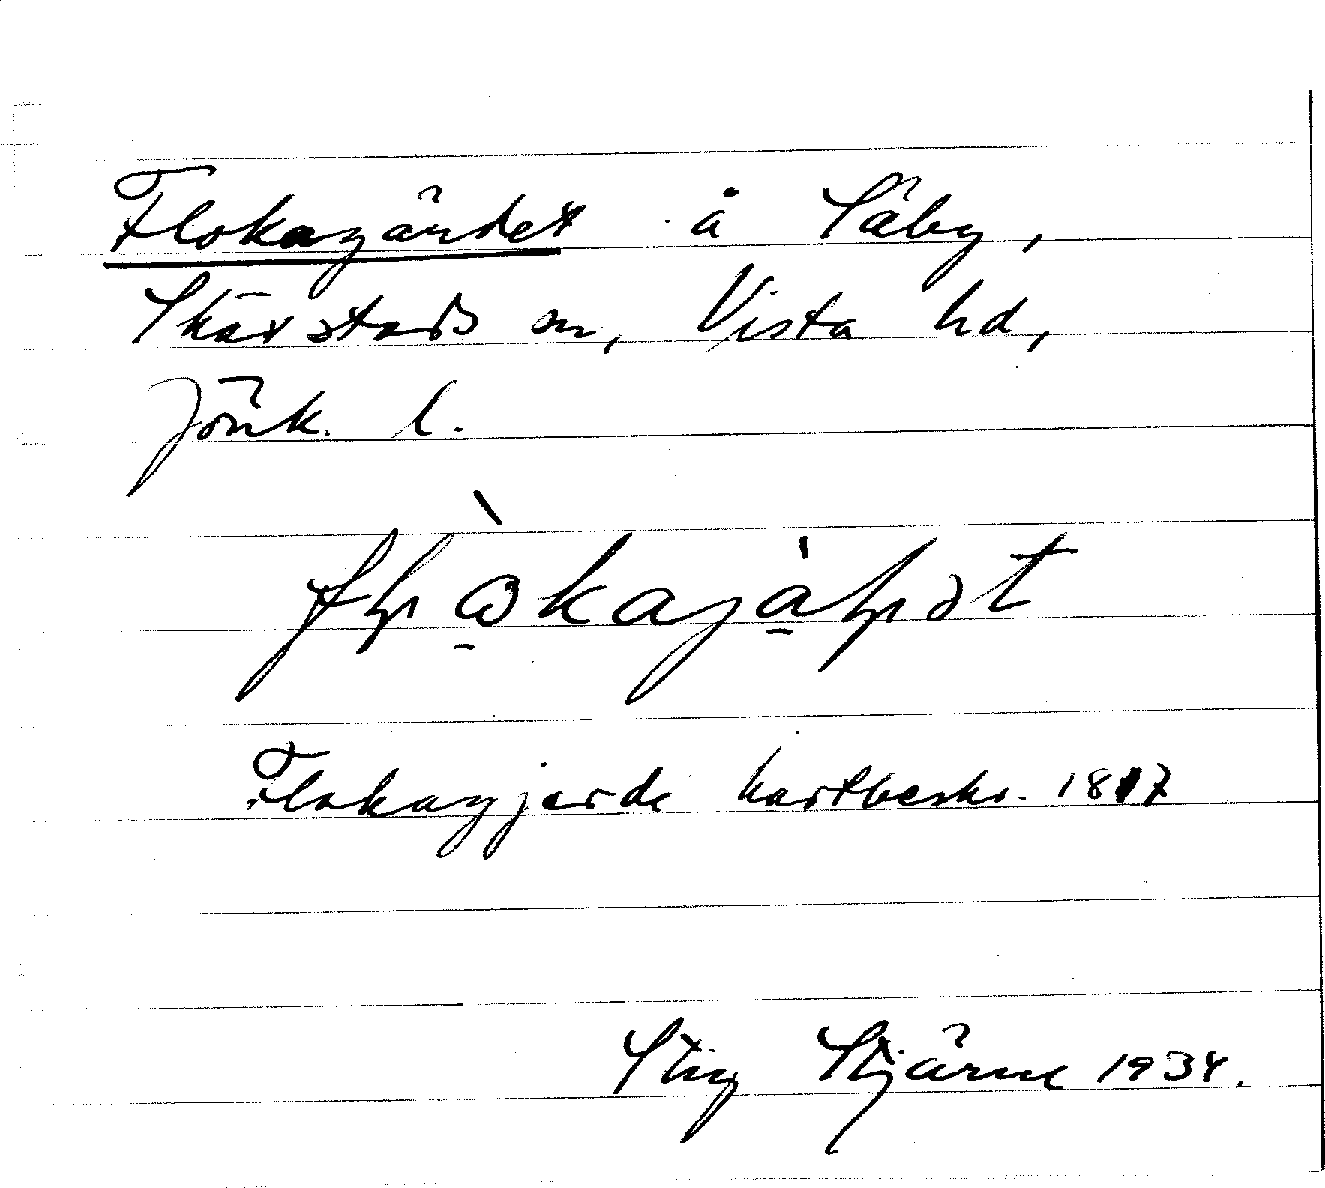 Flokagärdet å Säby,
Skärstads sn, Vista hd,
Jönk. l.
Flokagjerde kartbeskr. 1817
Stig Stjärne 1934.